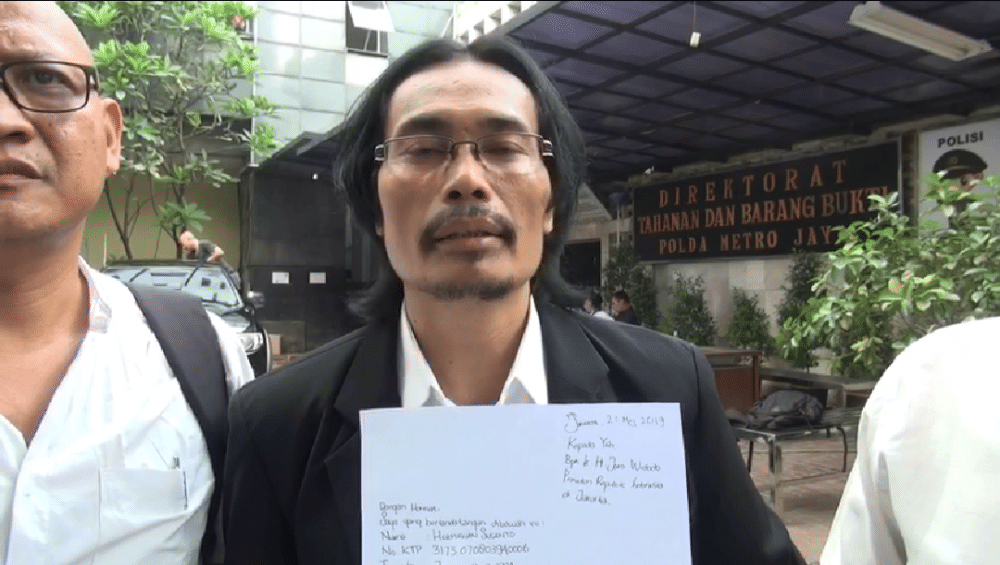 DIREKTORAT
TAHANAN DAN BARANG BUKTI
POLDA METRO JAYA
POLISI
Jakarta, 21 Mei 2019
Kepada Yth
Bpk Ir H Joko Widodo
Presiden Republik Indonesia
di Jakarta.
Dengan Hormat.
Saya yang bertandatangan dibawah ini:
Nama :
No KTP 3175 070803940006